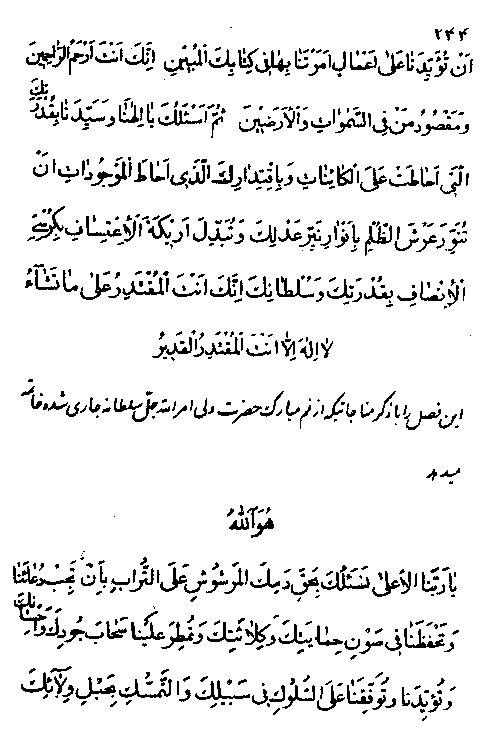 ۲۴۴
اَنْ تُؤَيِّدَنَا عَلىٰ اَعْمٰالٍ اَمَرْتَنٰا بِهٰا فى كِتٰابِكَ الْمُبينِ اِنَّكَ اَنْتَ اَرْحَمُ الرّٰاحِمينَ
وَ مَقْصُودُ مَنْ فِى السَّمٰوٰاتِ وَ الْاَرَضينَ ثُمَّ اَسْئَلُكَ يٰا اِلٰهَنٰا وَ سَيِّدَنٰا بِقُدْرَتِكَ
الَّتى اَحٰاطَتْ عَلَى الْكٰائِنٰاتِ وَ بِاقْتِدٰارِكَ الَّذى اَحٰاطَ الْمَوْجُودٰاتِ اَنْ
تُنَوِّرَ عَرْشَ الظُّلْمِ بِاَنْوٰارِ نَيِّرِ عَدْلِكَ وَ تُبَدِّلَ اَريكَةَ الْاِعْتِسٰافِ بِكُرْسِىِّ
الْاِنْصٰافِ بِقُدْرَتِكَ وَ سُلْطٰانِكَ اِنَّكَ اَنْتَ الْمُقْتَدِرُ عَلىٰ مٰا تَشٰآءُ
لٰا اِلٰهَ اِلّٰا اَنْتَ الْمُقْتَدِرُ الْقَديرُ
این فصل را با ذکر مناجاتیکه از فم مبارک حضرت ولی امرالله جل سلطانه جاری شده خاتمه
میدهد
هُوَ اللّٰهُ
يٰا رَبَّنَا الْاَعْلىٰ نَسْئَلُكَ بِحَقِّ دَمِكَ الْمَرْشُوشِ عَلَى التُّرٰابِ بِاَنْ تُجيبَ دُعٰائَنٰا
وَ تَحْفَظَنٰا فى صَوْنِ حِمٰايَتِكَ وَ كِلٰائَتِكَ وَ تُمْطِرَ عَلَيْنٰا سَحٰابَ جُودِكَ وَ اِحْسٰانِكَ
وَ تُؤَيِّدَنٰا وَ تُوَفِّقَنٰا عَلَى السُّلُوكِ فى سَبيلِكَ وَ التَّمَسُّكِ بِحَبْلِ وِلٰائِكَ